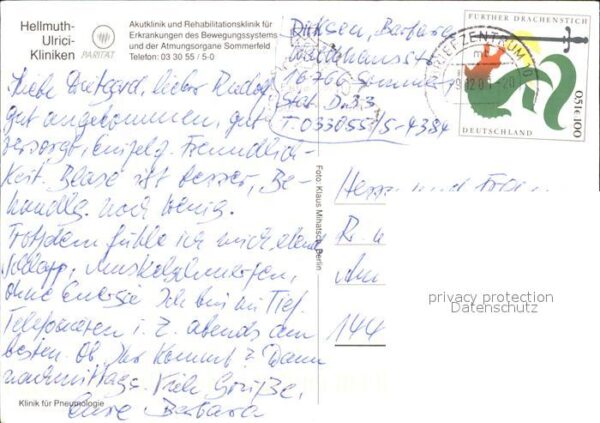 Hellmuth-
Ulrici-
Kliniken
PARITÄT
Akutklinik und Rehabilitationsklinik für
Erkrankungen des Bewegungssystems
und der Atmungsorgane Sommerfeld
Telefon: 03 30 55 / 5-0
Dirksen, Barbara
Waldhausstr
16766 Sommerf
Stat. D 33
T. 033055/5-4384
FURTHER DRACHENSTICH
BRIEFZENTRUM 10
0,51 € 100
DEUTSCHLAND
Liebe Luitgard, lieber Rudolf
gut angekommen, gut
versorgt, einfalg. Freundlich-
keit. Blase ist besser, Be-
handlg. noch wenig.
Trotzdem fühle ich mich
schlapp, Muskelschmerzen,
ohne Energie. Ich bin im Tief.
Telefonieren i. Z. abends am
besten. Ob Ihr kommt? Dann
nachmittags. Viele Grüße,
Eure Barbara
Foto: Klaus Mihatsch, Berlin
Herrn und Frau
Am
144
privacy protection
Datenschutz
Klinik für Pneumologie